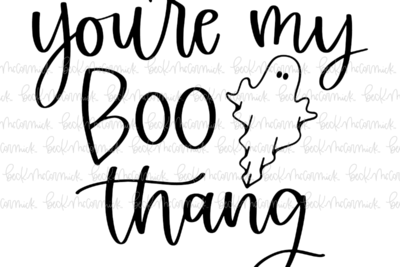 you're my
Boo
thang